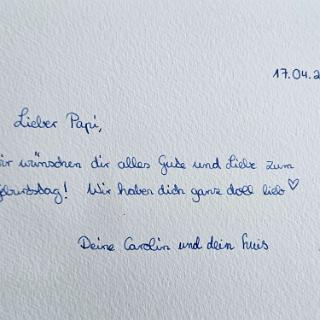 17.04.2
Lieber Papi,
ir wünschen dir alles Gute und Liebe zum
eburtstag! Wir haben dich ganz doll lieb ♡
Deine Carolin und dein Luis